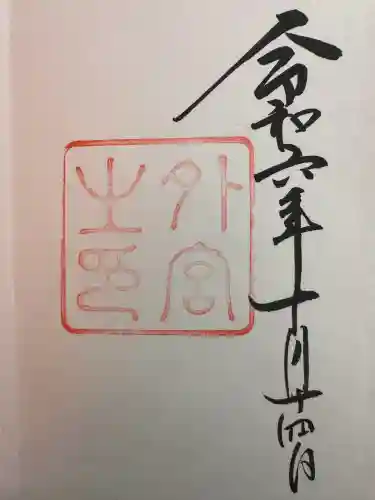 令和六年十月廿四日
外宮
之印